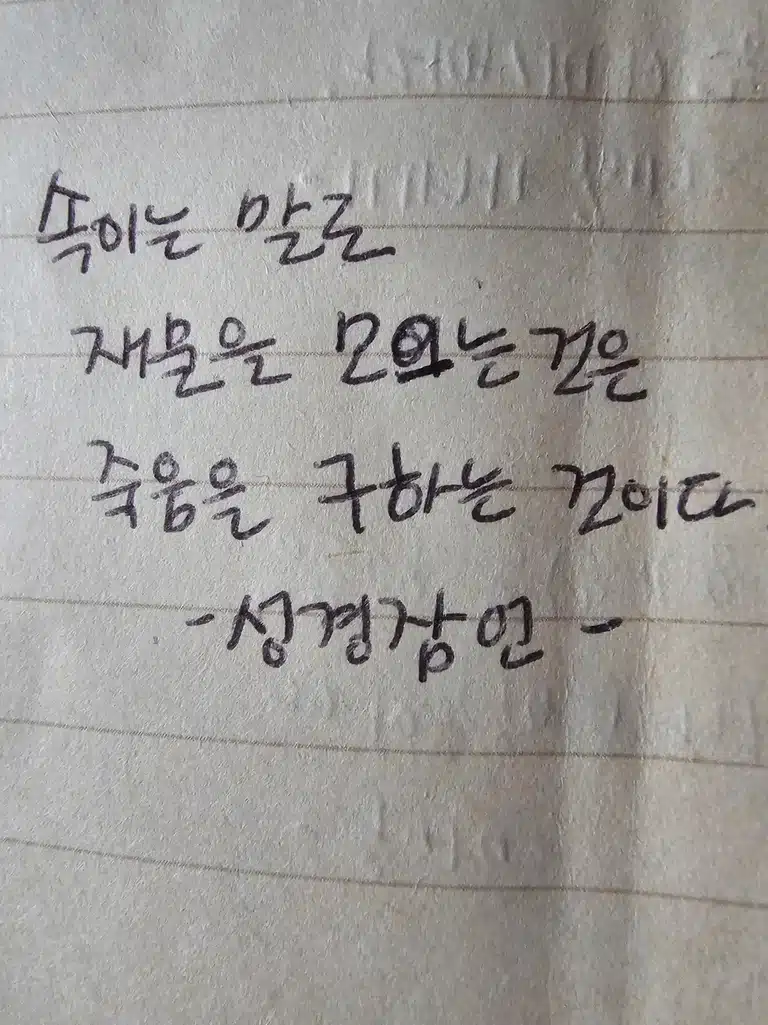 속이는 말로
재물을 모으는것은
죽음을 구하는 것이다
-성경잠언-